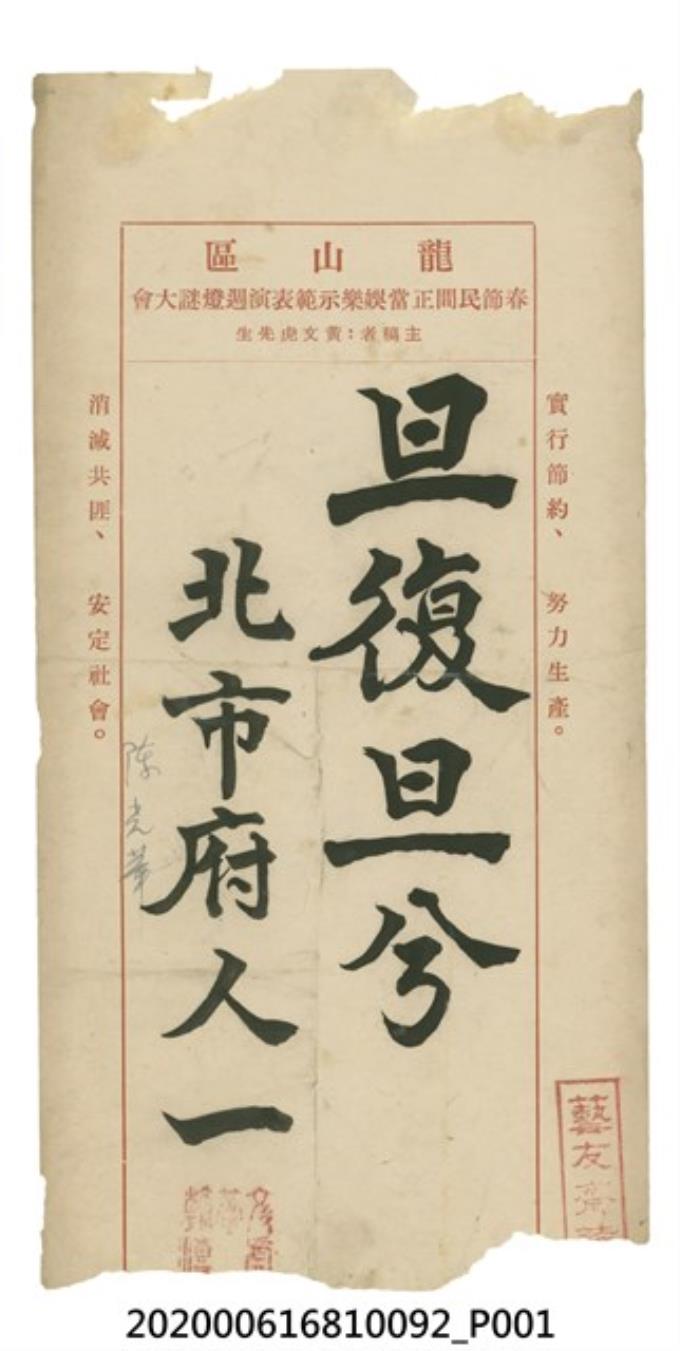 龍山區
春節民間正當娛樂示範表演週燈謎大會
主稿者：黃文虎先生
實行節約、努力生產。
旦復旦兮
北市府人一
陳光華
消滅共匪、安定社會。
藝友齋
202000616810092_P001